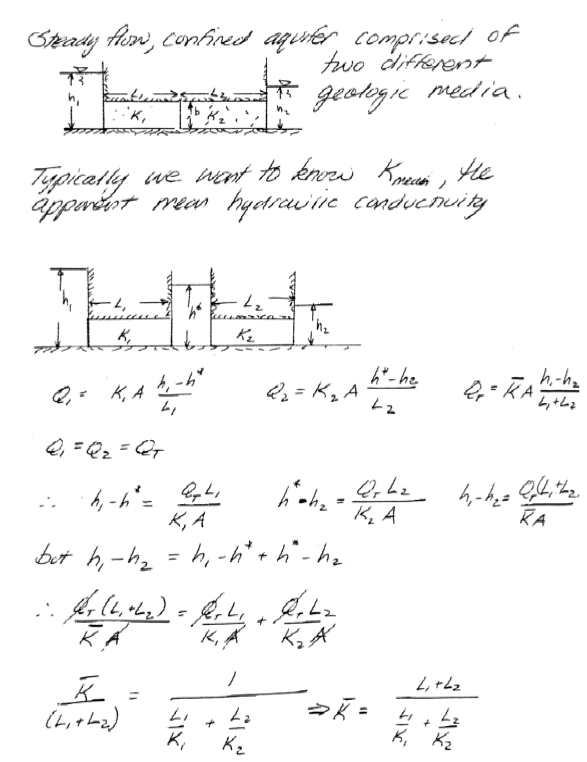 Steady flow, confined aquifer comprised of
two different
geologic media.
h₁ L₁ L₂ h₂
K₁ b K₂
Typically we want to know Kmean, the
apparent mean hydraulic conductivity
h₁ L₁ h* L₂ h₂
K₁ K₂
Q₁ = K₁ A (h₁-h*)/L₁ Q₂ = K₂ A (h*-h₂)/L₂ Q_T = K̄ A (h₁-h₂)/(L₁+L₂)
Q₁ = Q₂ = Q_T
∴ h₁-h* = Q_T L₁/(K₁ A) h*-h₂ = Q_T L₂/(K₂ A) h₁-h₂ = Q_T(L₁+L₂/(K̄A)
but h₁-h₂ = h₁-h* + h*-h₂
∴ Q_T(L₁+L₂)/(K̄ A) = Q_T L₁/(K₁ A) + Q_T L₂/(K₂ A)
K̄/(L₁+L₂) = 1/(L₁/K₁ + L₂/K₂) ⇒ K̄ = (L₁+L₂)/(L₁/K₁ + L₂/K₂)